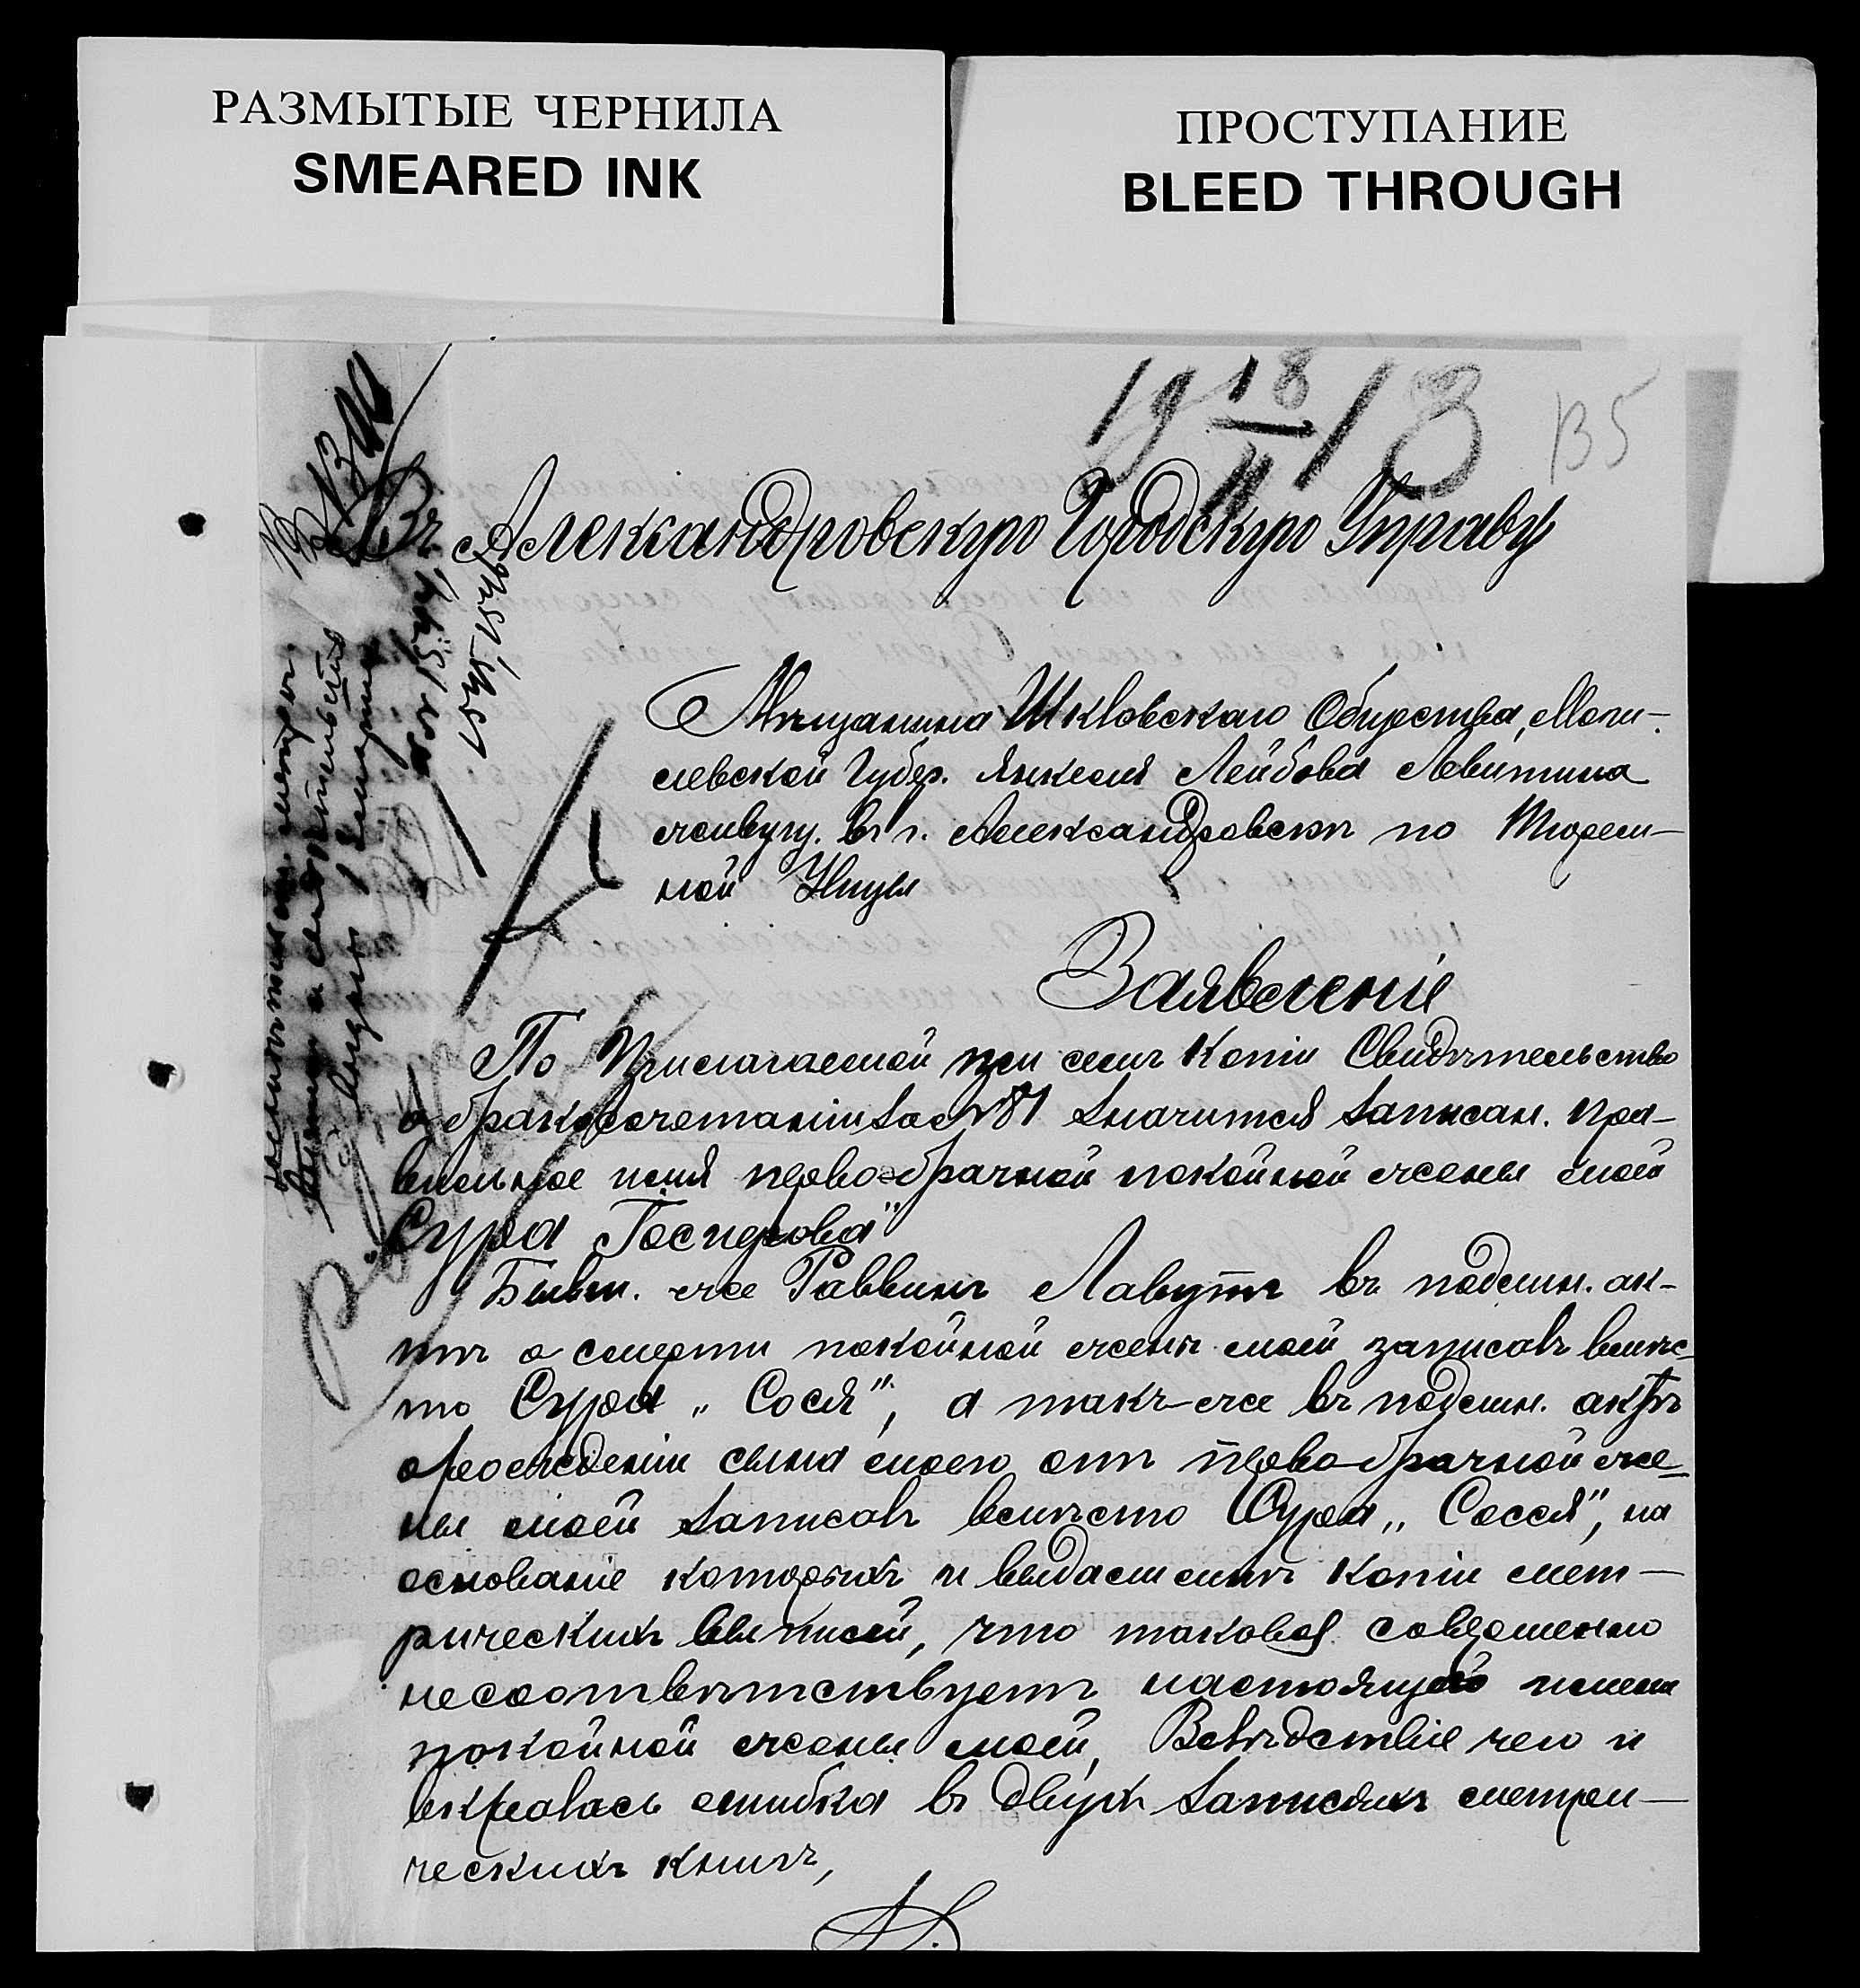 РАЗМЫТЫЕ ЧЕРНИЛА
SMEARED INK
ПРОСТУПАНИЕ
BLEED THROUGH
19 18/II 13
135
Въ Александровскую Городскую Управу
Мѣщанина Шкловскаго Общества, Моги-
левской Губер. Янкеля Лейбова Левитина
живущ. въ г. Александровскѣ по Тюрем-
ной Улицы
Заявленіе
По Прилагаемой при семъ Копіи Свидѣтельство
о бракосочетаніи за № 81 значится записан. пра-
вильное имя первобрачной покойной жены моей
Сура Іосифова"
Бывш. же Раввинъ Лавутъ въ подлин. ак-
тѣ о смерти покойной жены моей записавъ вмѣс-
то Сура „Сося", а такъ-же въ подлин. актѣ
о рожденіи сына моего отъ перво-брачной же-
ны моей записавъ вмѣсто Сура „Сосся", на
основаніе которыхъ и выдалъ мнѣ копіи мет-
рическихъ выписей, что таковая совершенно
несоотвѣтствуетъ настоящаго имени
покойной жены моей, Вслѣдствіе чего и
вкралась ошибка въ двухъ записяхъ метри-
ческихъ книгъ,